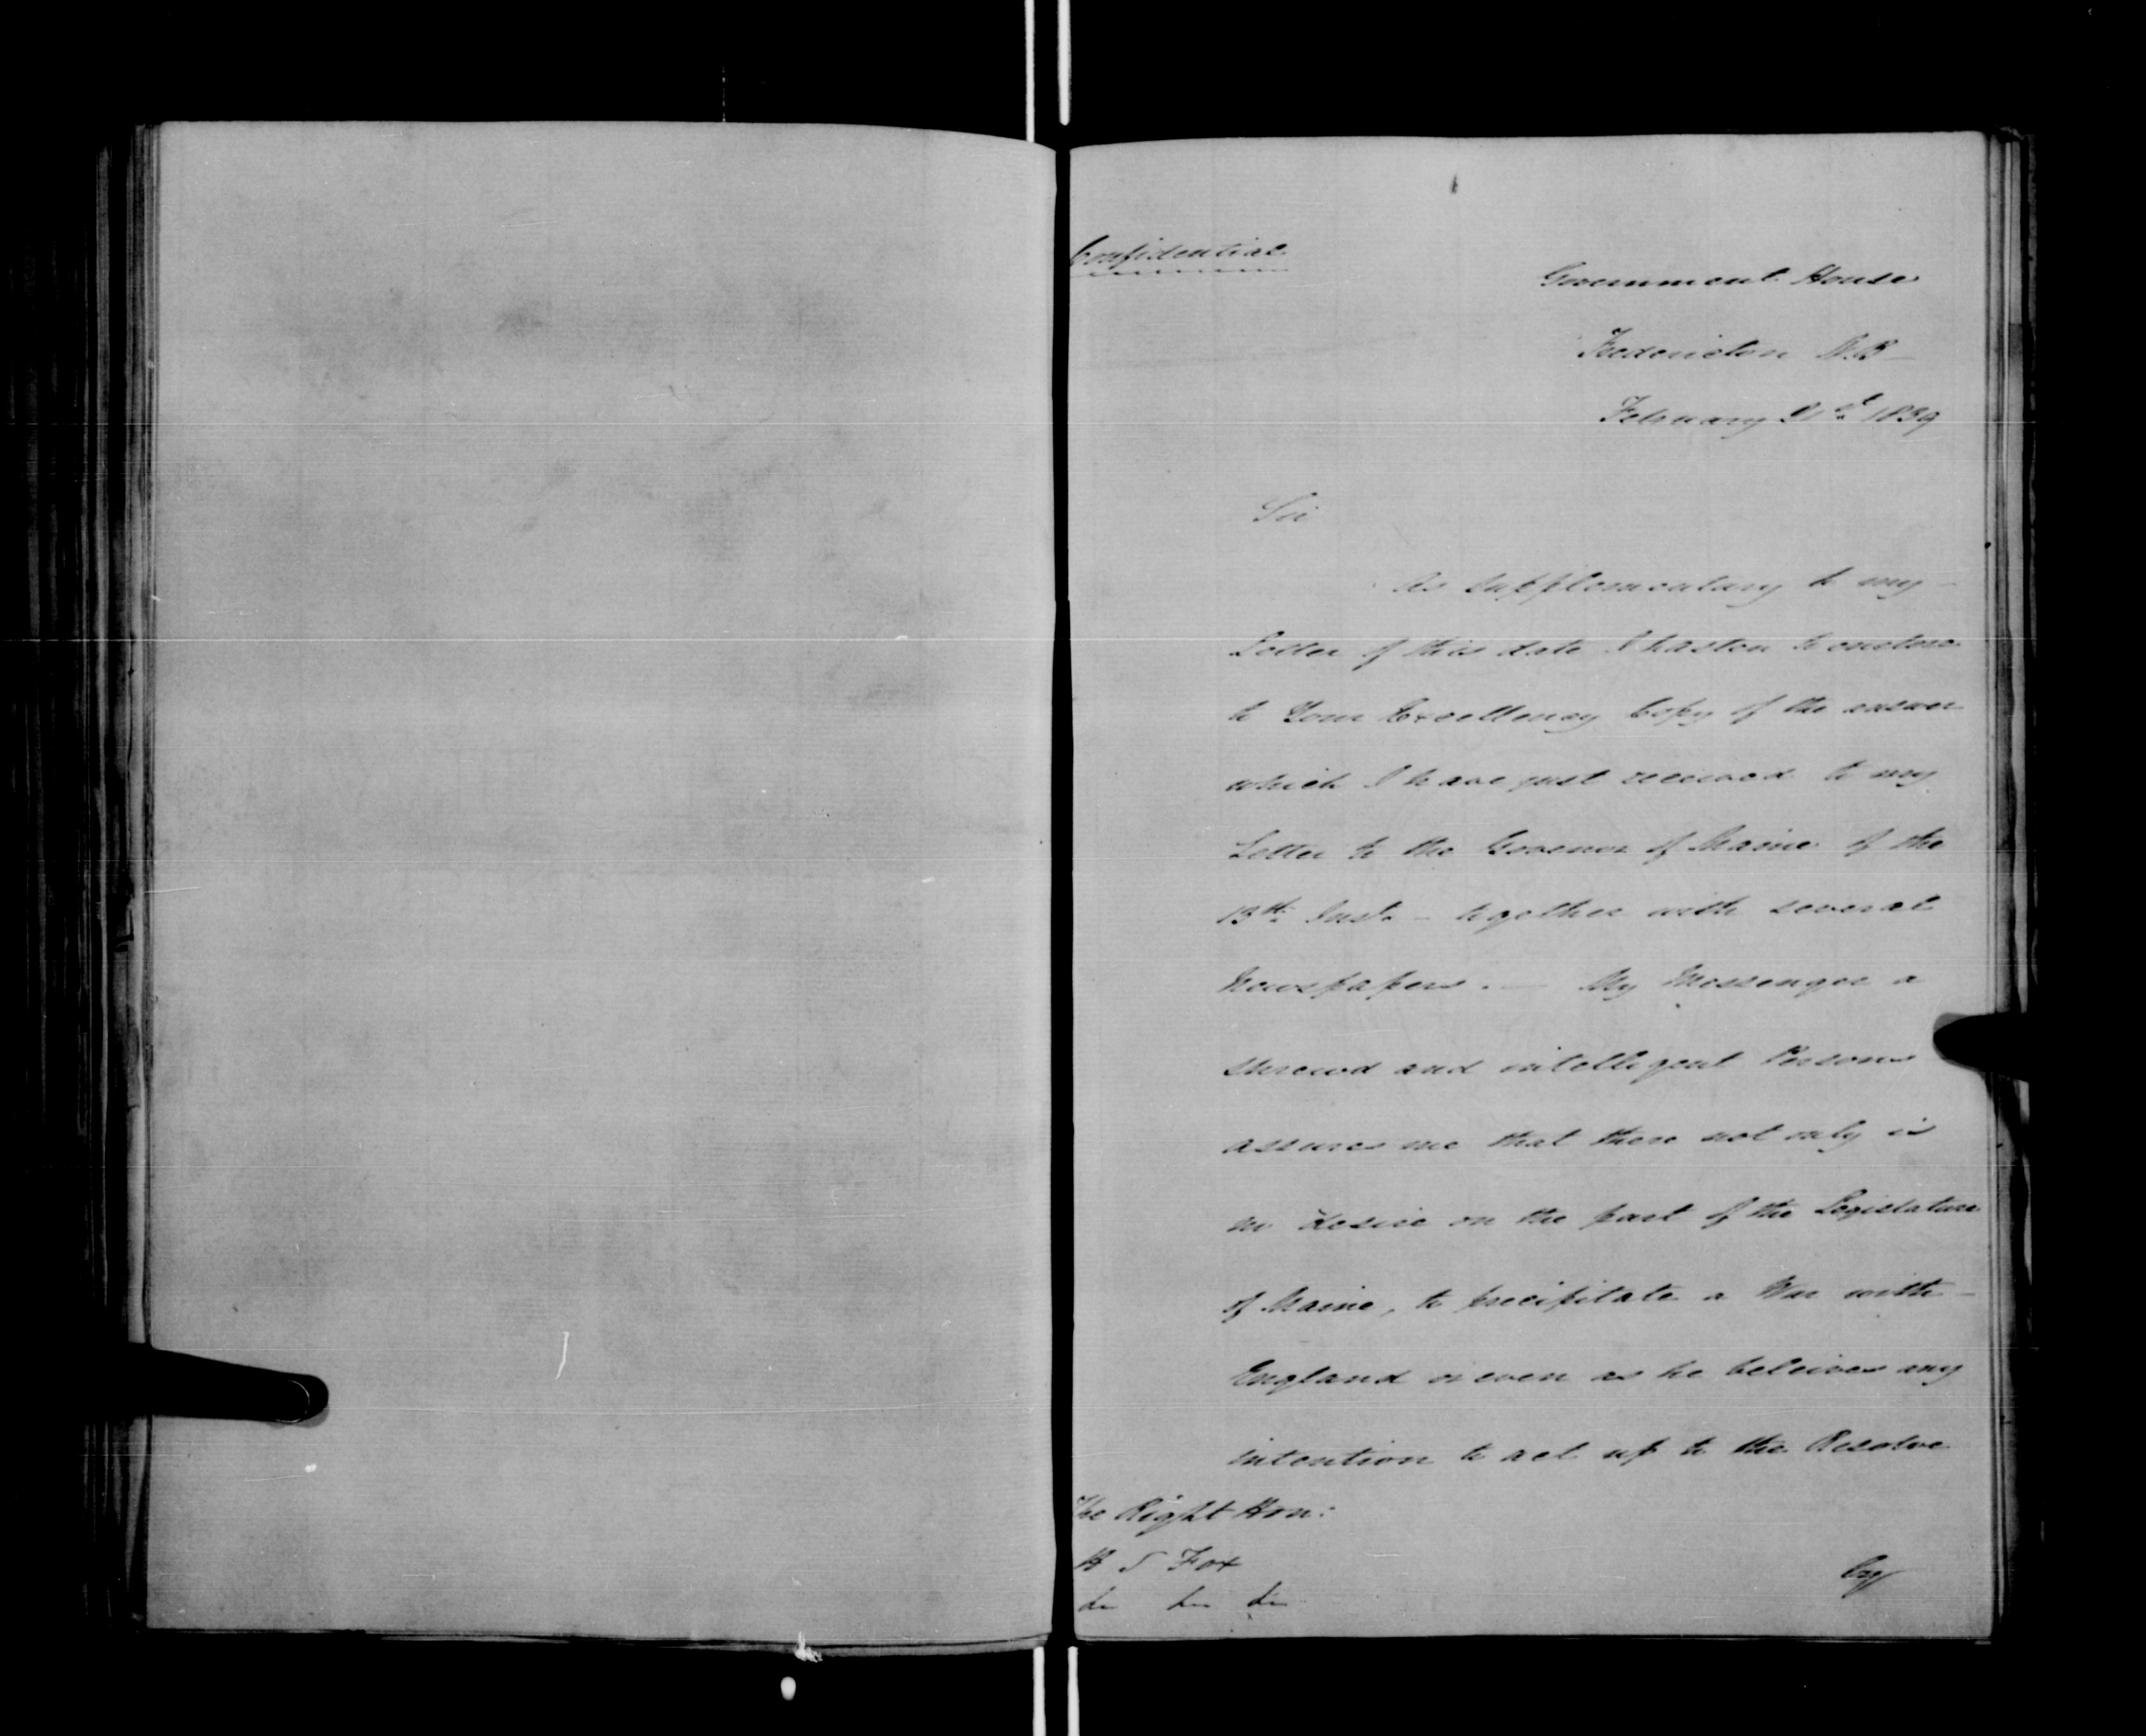 Confidential
Government House
Fredericton N.B
February 21st 1839
Sir
As supplementary to my
Letter of this date I hasten to enclose
to Your Excellency Copy of the answer
which I have just received to my
Letter to the Governor of Maine of the
13th Inst. – together with several
Newspapers. — My Messenger a
shrewd and intelligent Person
assures me that there not only is
no desire on the part of the Legislature
of Maine, to precipitate a War with
England or even as he beleives any
intention to act up to the Resolve
The Right Hon:
H S Fox